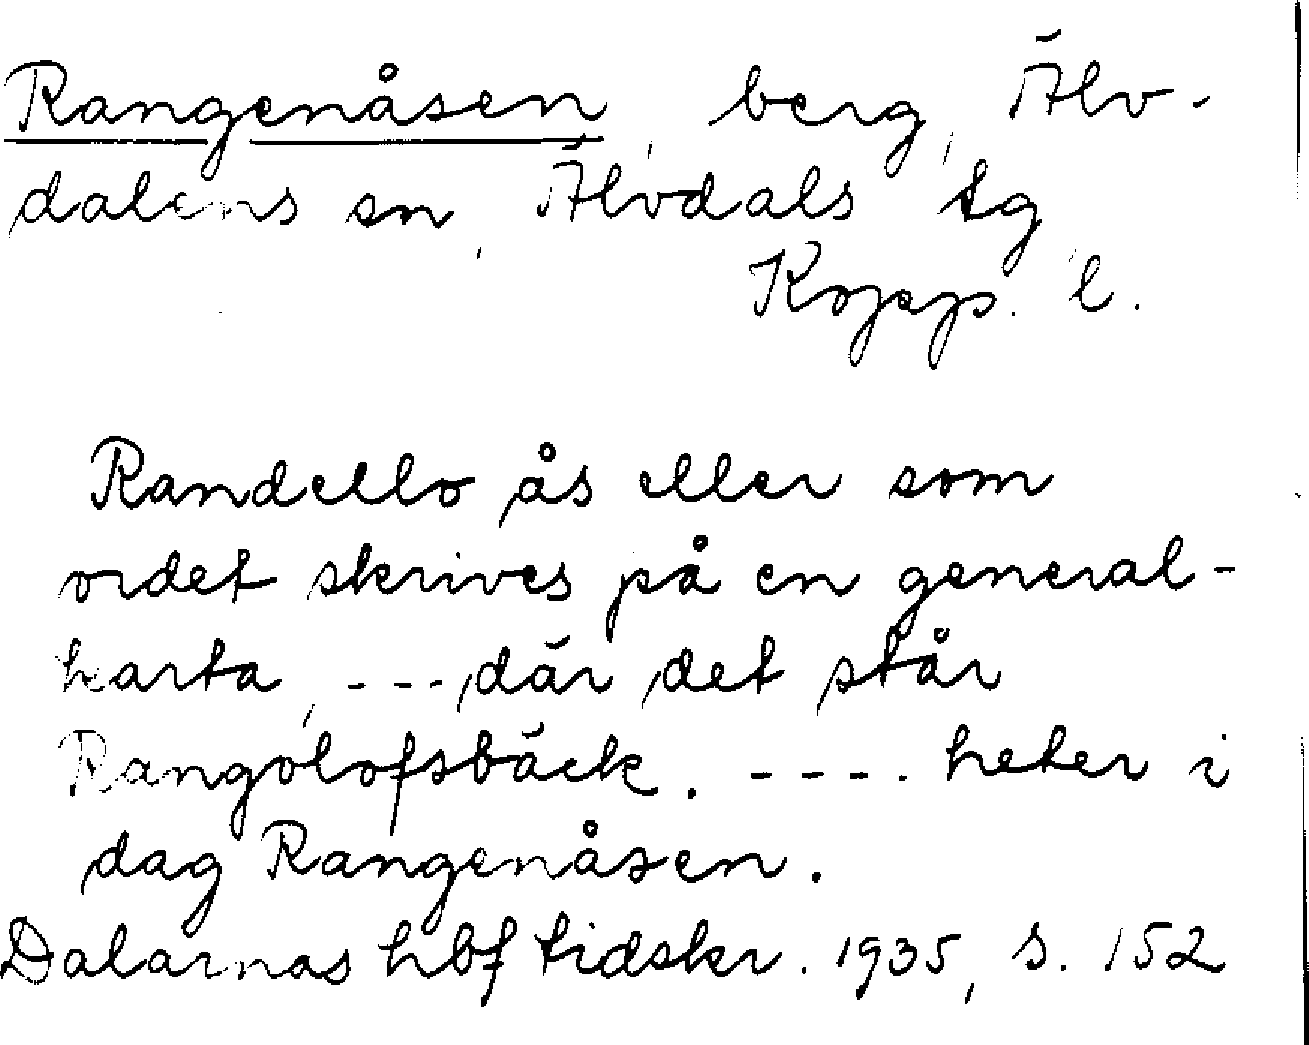 Rangenåsen, berg, Älv-
dalens sn, Älvdals tg
Kopp. l.
Randello ås eller som
ordet skrives på en general-
karta, --- där det står
Rangolofsbäck. ---- heter i
dag Rangenåsen.
Dalarnas hbf tidskr. 1935, s. 152